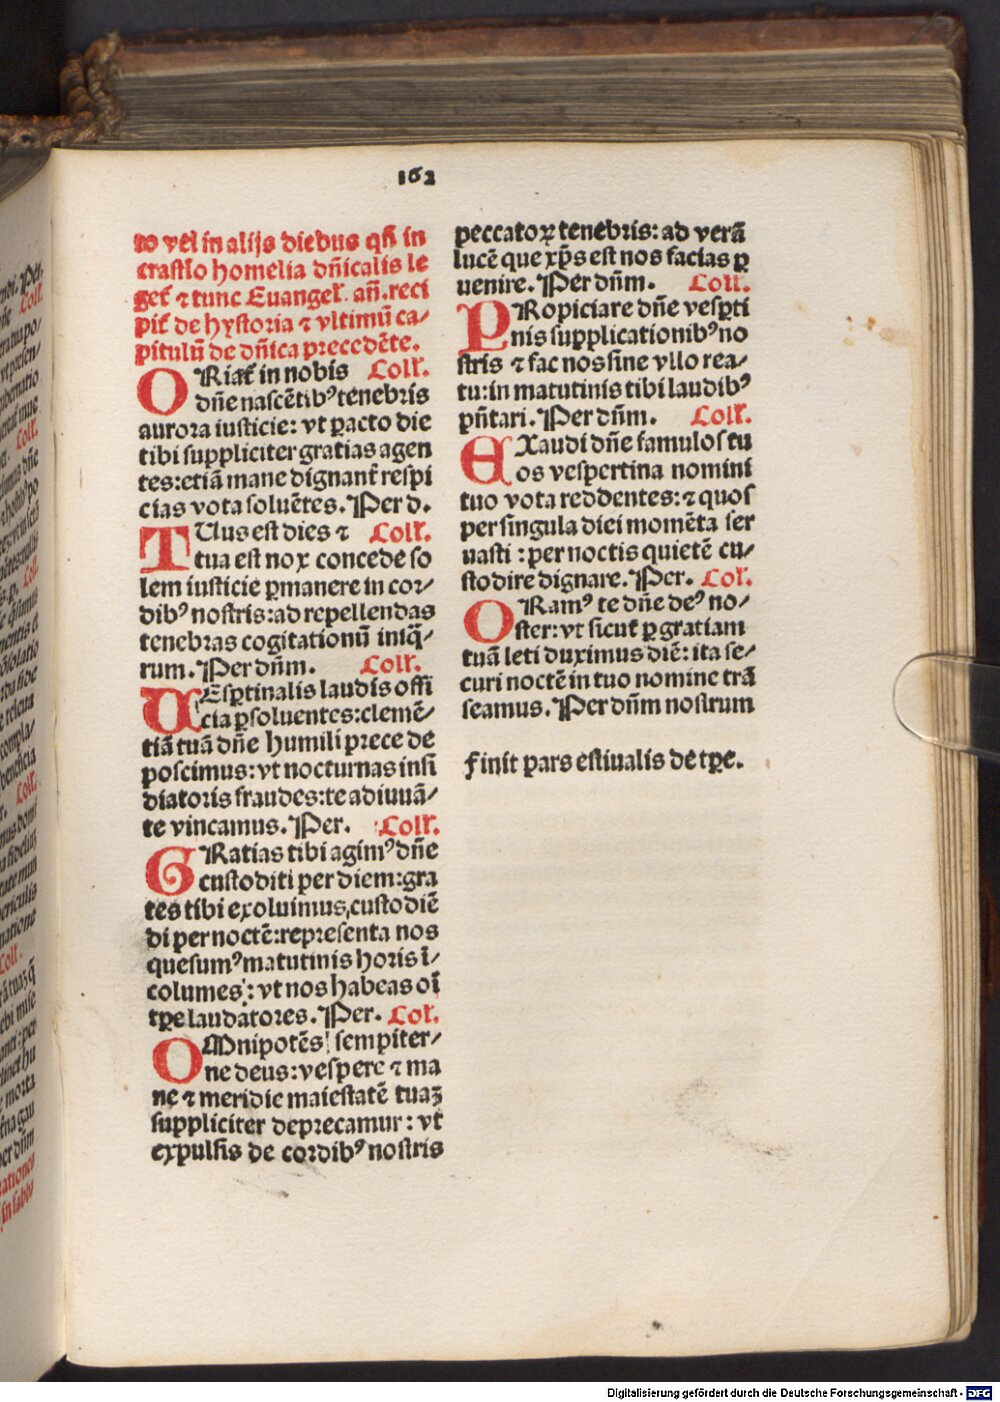 162
to vel in alijs diebus qñ in
crastĩo homelia dñicalis le
get̃ ⁊ tunc Euangel̃. añ. reci
pit̃ de hystoria ⁊ vltimũ ca⸗
pitulũ de dñica precedẽte.
ORiat̃ in nobis Coll̃.
dñe nascẽtibꝰ tenebris
aurora iusticie: vt ꝑacto die
tibi suppliciter gratias agen
tes: etiã mane dignant̃ respi
cias vota soluẽtes. Per d.
TUus est dies ⁊ Coll̃.
tua est nox concede so
lem iusticie ꝑmanere in cor⸗
dibꝰ nostris: ad repellendas
tenebras cogitationũ iniq̃⸗
rum. Per dñm. Coll̃.
UEsꝑtinalis laudis offi
cia ꝑsoluentes: clemẽ⸗
tiã tuã dñe humili prece de
poscimus: vt nocturnas insi
diatoris fraudes: te adiuuã⸗
te vincamus. Per. Coll̃.
GRatias tibi agimꝰ dñe
custoditi per diem: gra
tes tibi exoluimus, custodiẽ
di per noctẽ: representa nos
quesumꝰ matutinis horis ĩ⸗
columes: vt nos habeas oĩ
tꝑe laudatores. Per. Col̃.
OMnipotẽs sempiter⸗
ne deus: vespere ⁊ ma
ne ⁊ meridie maiestatẽ tuaꝫ
suppliciter deprecamur: vt
expulsis de cordibꝰ nostris
peccatoꝝ tenebris: ad verã
lucẽ que xp̃s est nos facias ꝑ
uenire. Per dñm. Coll̃.
PRopiciare dñe vesꝑti
nis supplicationibꝰ no
stris ⁊ fac nos sine vllo rea⸗
tu: in matutinis tibi laudibꝰ
pñtari. Per dñm. Coll̃.
EXaudi dñe famulos tu
os vespertina nomini
tuo vota reddentes: ⁊ quos
per singula diei momẽta ser
uasti: per noctis quietẽ cu⸗
stodire dignare. Per. Col̃.
ORamꝰ te dñe deꝰ no⸗
ster: vt sicut ꝑ gratiam
tuã leti duximus diẽ: ita se⸗
curi noctẽ in tuo nomine trã
seamus. Per dñm nostrum
Finit pars estiualis de tꝑe.
Digitalisierung gefördert durch die Deutsche Forschungsgemeinschaft - DFG